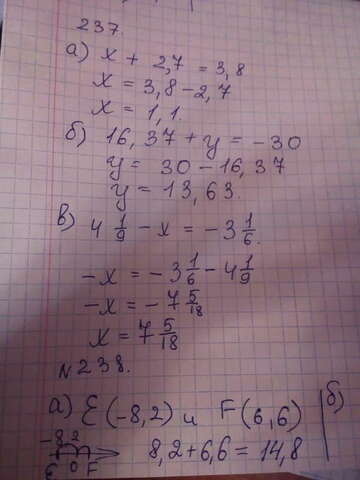 237.
а) x + 2,7 = 3,8
x = 3,8 - 2,7
x = 1,1.
б) 16,37 + y = -30
y = 30 - 16,37
y = 13,63.
в) 4 1/9 - x = -3 1/6.
-x = -3 1/6 - 4 1/9
-x = -7 5/18
x = 7 5/18
№238.
а) E(-8,2) и F(6,6) б)
-8,2
E 0 F 8,2+6,6 = 14,8